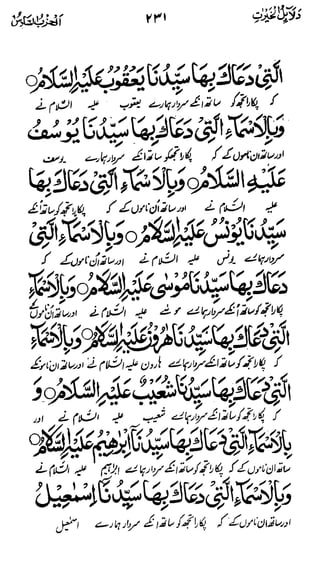 دلائل الخیرات ۲۳۱ الحزب السادس
الَّتِیْ دَعَاكَ بِهَا سَیِّدُنَا یَعْقُوْبُ عَلَیْهِ السَّلَامُ ○
کہ پکارا تجھ کو ساتھ انکے سردار ہمارے یعقوب علیہ السلام نے
وَبِالْاَسْمَآءِ الَّتِیْ دَعَاكَ بِهَا سَیِّدُنَا یُوْسُفُ
اور ساتھ ان ناموں کے کہ پکارا تجھکو ساتھ انکے سردار ہمارے یوسف
عَلَیْهِ السَّلَامُ ○ وَبِالْاَسْمَآءِ الَّتِیْ دَعَاكَ بِهَا
علیہ السلام نے اور ساتھ اُن ناموں کے کہ پکارا تجھ کو ساتھ اُنکے
سَیِّدُنَا یُوْنُسُ عَلَیْهِ السَّلَامُ ○ وَبِالْاَسْمَآءِ الَّتِیْ
سردار ہمارے یونس علیہ السلام نے اور ساتھ ان ناموں کے کہ
دَعَاكَ بِهَا سَیِّدُنَا مُوْسٰی عَلَیْهِ السَّلَامُ ○ وَبِالْاَسْمَآءِ
پکارا تجھ کو ساتھ اُنکے سردار ہمارے موسٰے علیہ السلام نے اور ساتھ ان ناموں کے
الَّتِیْ دَعَاكَ بِهَا سَیِّدُنَا هٰرُوْنُ عَلَیْهِ السَّلَامُ ○ وَبِالْاَسْمَآءِ
کہ پکارا تجھ کو ساتھ انکے سردار ہمارے ہارون علیہ السلام نے اور ساتھ ان ناموں کے
الَّتِیْ دَعَاكَ بِهَا سَیِّدُنَا شُعَیْبٌ عَلَیْهِ السَّلَامُ ○ وَ
کہ پکارا تجھ کو ساتھ انکے سردار ہمارے شعیب علیہ السلام نے اور
بِالْاَسْمَآءِ الَّتِیْ دَعَاكَ بِهَا سَیِّدُنَا اِبْرٰهِیْمُ عَلَیْهِ السَّلَامُ ○
ساتھ ان ناموں کے کہ پکارا تجھ کو ساتھ انکے سردار ہمارے ابراہیم علیہ السلام نے
وَبِالْاَسْمَآءِ الَّتِیْ دَعَاكَ بِهَا سَیِّدُنَا اِسْمٰعِیْلُ
اور ساتھ ان ناموں کے کہ پکارا تجھ کو ساتھ انکے سردار ہمارے اسمٰعیل